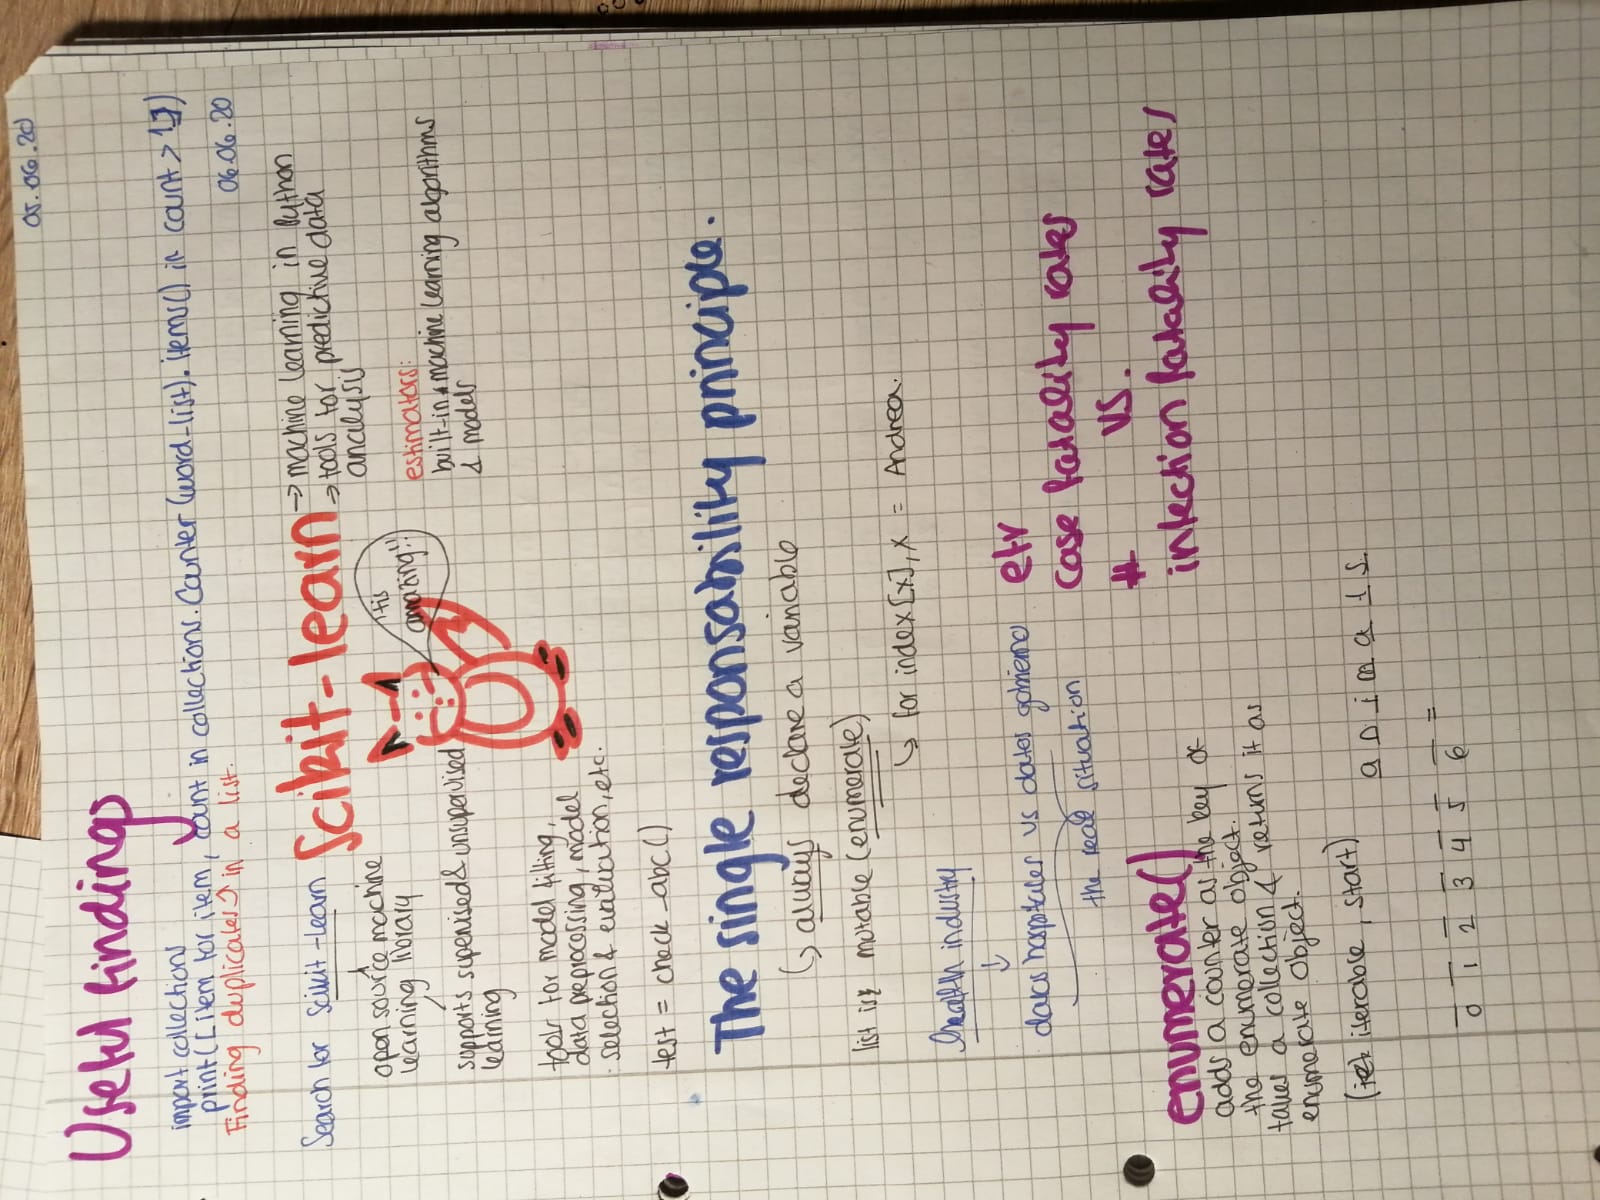 05.06.20
Useful findings
import collections
print([item for item, count in collections.Counter(word-list).items() if count > 1])
Finding duplicates in a list.
06.06.20
Search for Scikit-learn
Scikit-learn
→ machine learning in Python
→ tools for predictive data
analysis
open source machine
learning library
'tis
amazing!!
estimators:
built-in machine learning algorithms
& models
supports supervised & unsupervised
learning
tools for model fitting,
data preprocessing, model
selection & evaluation, etc.
test = check-abc()
The single responsability principle.
↳ always declare a variable
list is mutable (enumerate)
↳ for index[x], x = Andrea.
health industry
↓
datos hospitales vs datos gobierno
the real situation
cfr
case fatality rates
≠ vs.
infection fatality rates
enumerate()
adds a counter as the key of
the enumerate object.
takes a collection & returns it as
enumerate object.
(iterable, start)
a n i m a l s
0 1 2 3 4 5 6 =